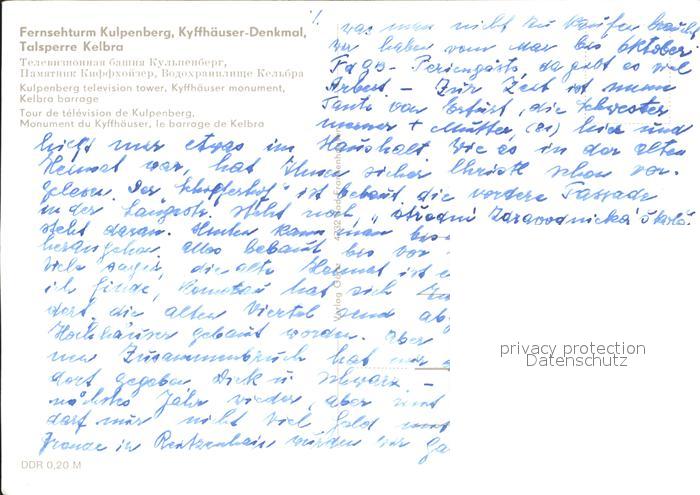 Fernsehturm Kulpenberg, Kyffhäuser-Denkmal,
Talsperre Kelbra
Телевизионная башня Кульпенберг,
Памятник Киффхойзер, Водохранилище Кельбра
Kulpenberg television tower, Kyffhäuser monument,
Kelbra barrage
Tour de télévision de Kulpenberg,
Monument du Kyffhäuser, le barrage de Kelbra
was man nicht zu kaufen braucht
Wir haben vom Mai bis Oktober
FdgB- Feriengäste da gibt es viel
Arbeit. – Zur Zeit ist meine
Tante von Erfurt, die Schwester
meiner + Mutter, (81) hier und
hilft mir etwas im Haushalt. Wie es in der alten
Heimat war, hat Ihnen sicher Christl schon vor-
gelesen. Der "Schafferhof" ist bebaut, die vordere Fassade
in der Langestr. steht noch, "střední Zdravodnická škola"
steht daran. Hinten kann man bis
herangehen, alles bebaut bis vor
Viele sagen, die alte Heimat ist
ich finde, Komotau hat sich
dort die alten Viertel sind ab
Hochhäuser gebaut worden. Aber
nen Zusammenbruch hat
dort gegeben. Dick u. schwarz –
nächstes Jahr wieder, aber
darf nur nicht viel Geld
Freude in Reitzenhain würden wir
DDR 0,20 M
privacy protection
Datenschutz